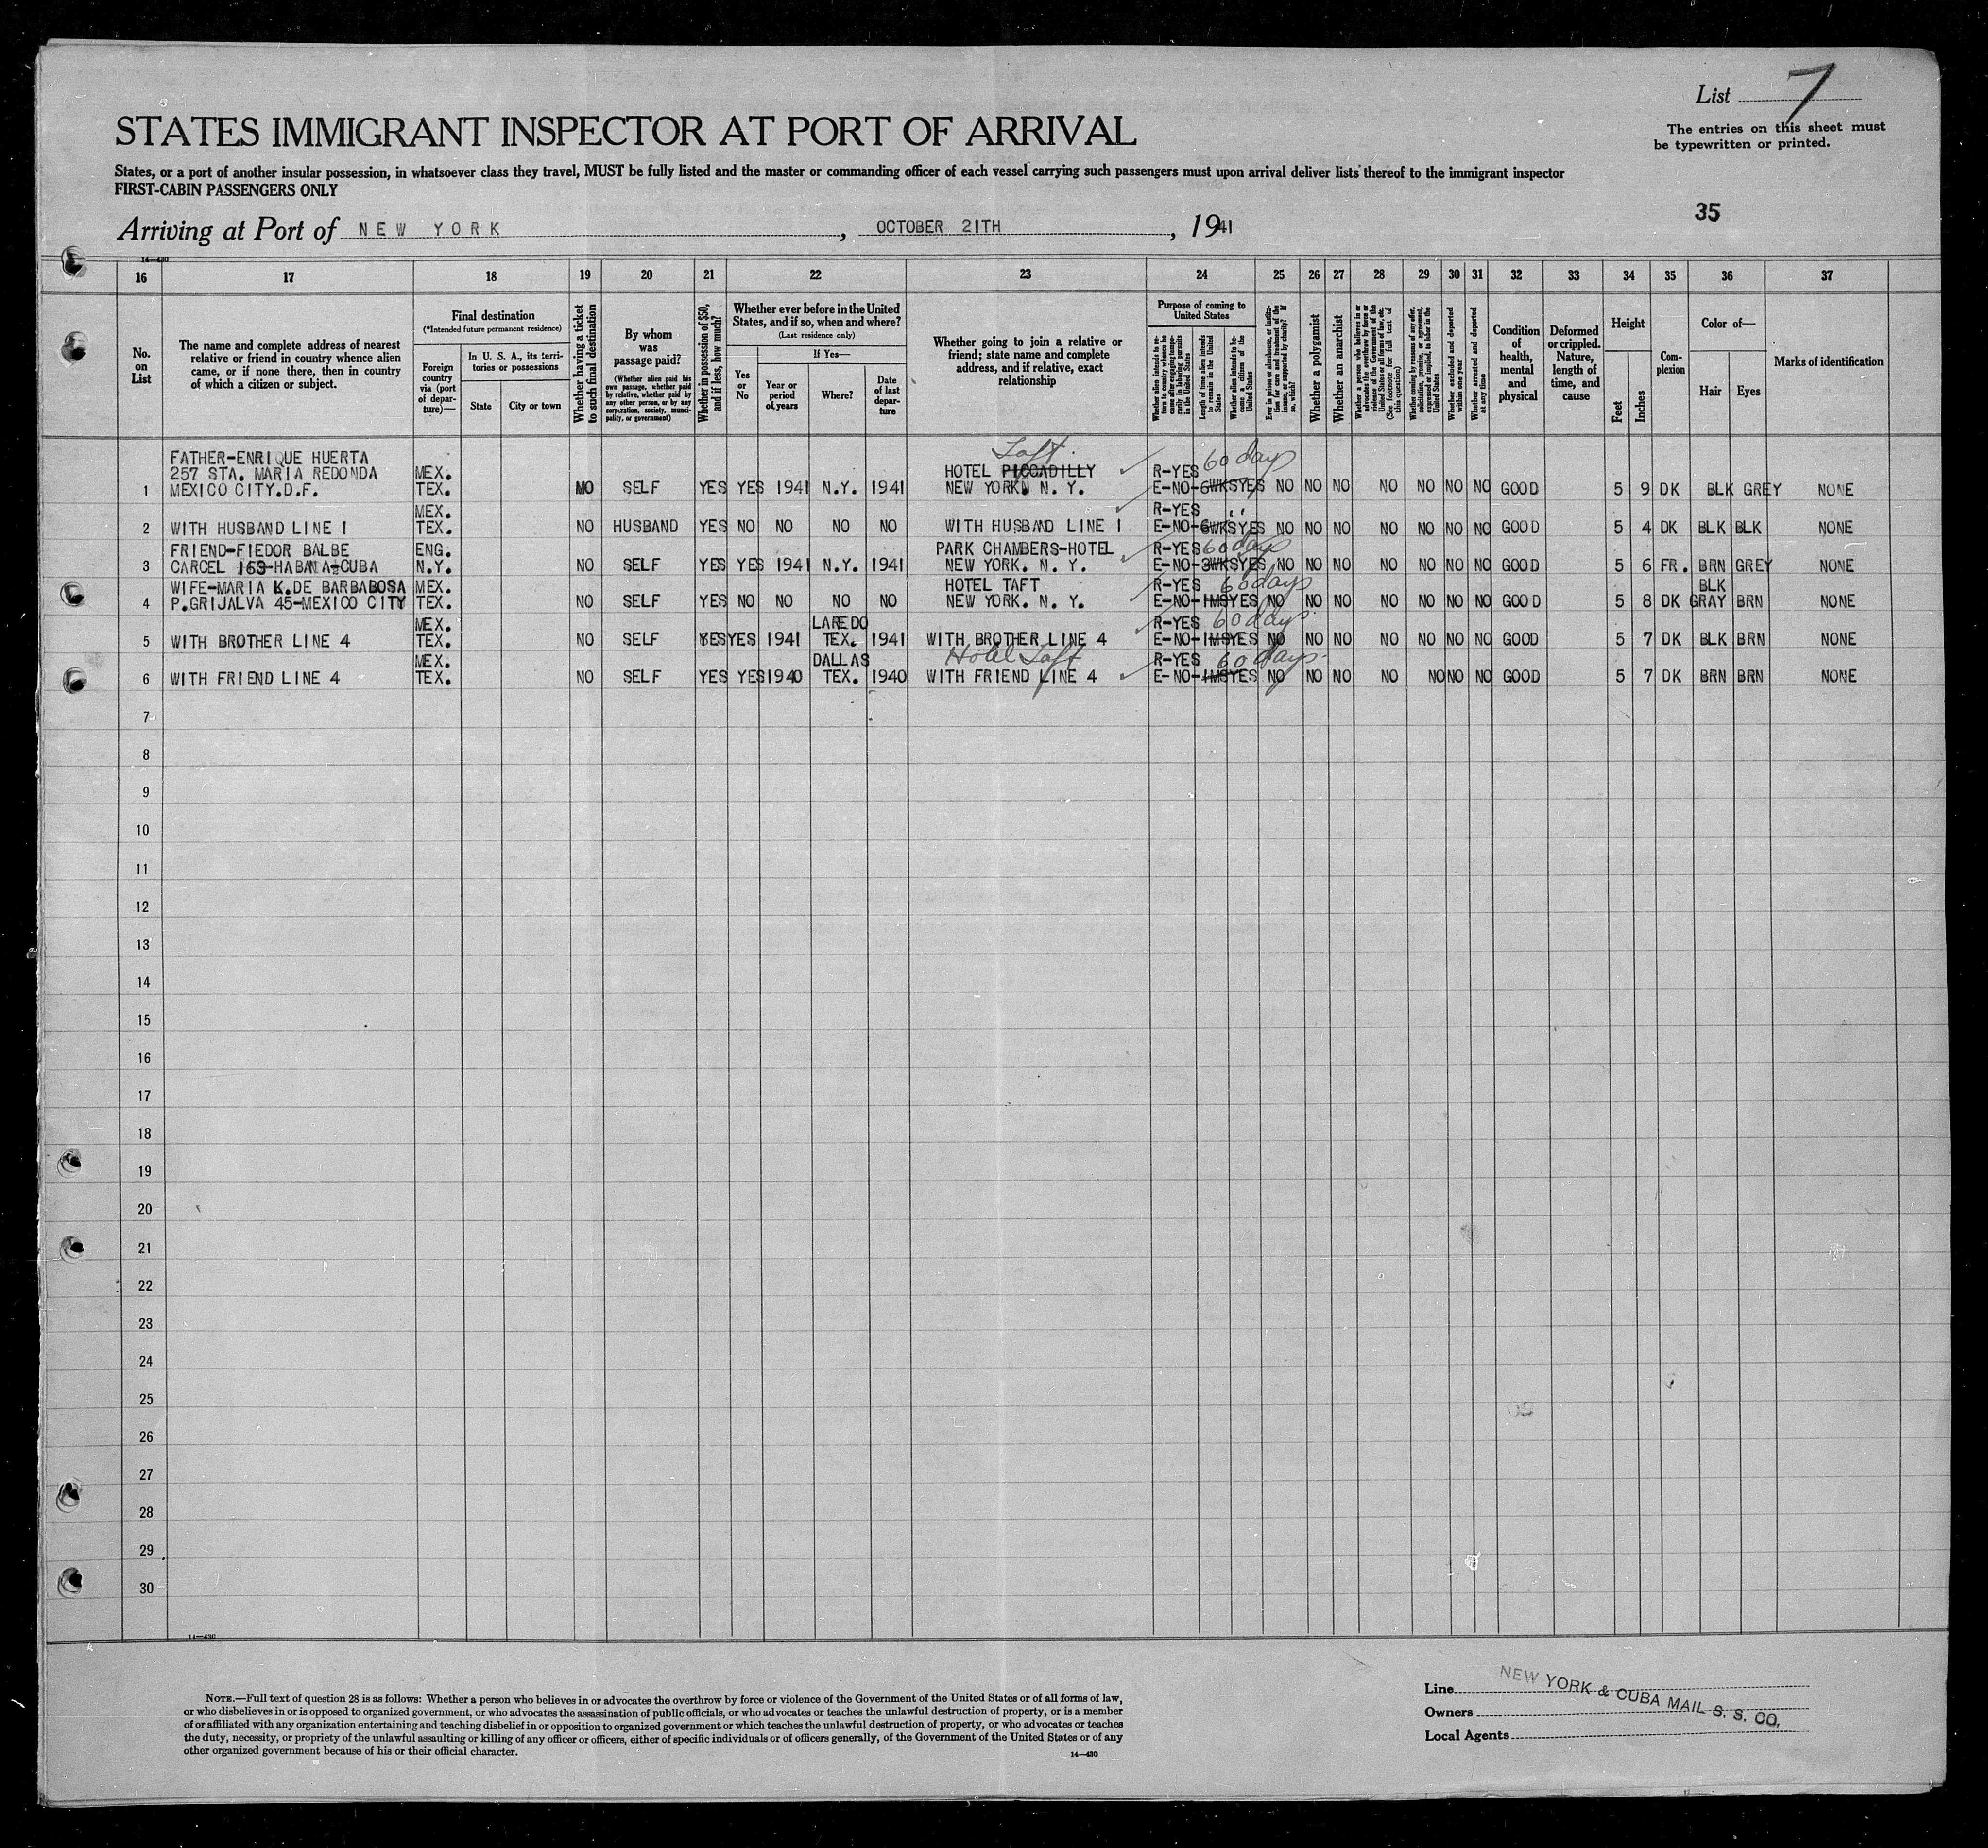 List 7
The entries on this sheet must
be typewritten or printed.
STATES IMMIGRANT INSPECTOR AT PORT OF ARRIVAL
States, or a port of another insular possession, in whatsoever class they travel, MUST be fully listed and the master or commanding officer of each vessel carrying such passengers must upon arrival deliver lists thereof to the immigrant inspector
FIRST-CABIN PASSENGERS ONLY
35
Arriving at Port of NEW YORK, OCTOBER 21TH, 1941
14—430
16 17 18 19 20 21 22 23 24 25 26 27 28 29 30 31 32 33 34 35 36 37
No.
on
List
The name and complete address of nearest
relative or friend in country whence alien
came, or if none there, then in country
of which a citizen or subject.
Final destination
(*Intended future permanent residence)
Foreign
country
via (port
of depar-
ture)—
In U. S. A., its terri-
tories or possessions
State
City or town
Whether having a ticket
to such final destination
By whom
was
passage paid?
(Whether alien paid his
own passage, whether paid
by relative, whether paid by
any other person, or by any
corporation, society, munici-
pality, or government)
Whether in possession of $50,
and if less, how much?
Whether ever before in the United
States, and if so, when and where?
(Last residence only)
Yes
or
No
If Yes—
Year or
period
of years
Where?
Date
of last
depar-
ture
Whether going to join a relative or
friend; state name and complete
address, and if relative, exact
relationship
Purpose of coming to
United States
Whether alien intends to re-
turn to country whence he
came after engaging tempo-
rarily in laboring pursuits
in the United States
Length of time alien intends
to remain in the United
States
Whether alien intends to be-
come a citizen of the
United States
Ever in prison or almshouse, or institu-
tion for care and treatment of the
insane, or supported by charity? If
so, which?
Whether a polygamist
Whether an anarchist
Whether a person who believes in or
advocates the overthrow by force or
violence of the Government of the
United States or all forms of law, etc.
(See footnote for full text of
this question)
Whether coming by reasons of any offer,
solicitation, promise, or agreement,
expressed or implied, to labor in the
United States
Whether excluded and deported
within one year
Whether arrested and deported
at any time
Condition
of
health,
mental
and
physical
Deformed
or crippled.
Nature,
length of
time, and
cause
Height
Feet
Inches
Com-
plexion
Color of—
Hair
Eyes
Marks of identification
Taft
FATHER-ENRIQUE HUERTA
257 STA. MARIA REDONDA MEX. HOTEL PICCADILLY R-YES 60 days
1 MEXICO CITY.D.F. TEX. NO SELF YES YES 1941 N.Y. 1941 NEW YORK, N. Y. E-NO-6WKSYES NO NO NO NO NO NO NO GOOD 5 9 DK BLK GREY NONE
MEX. R-YES "
2 WITH HUSBAND LINE 1 TEX. NO HUSBAND YES NO NO NO NO WITH HUSBAND LINE 1 E-NO-6WKSYES NO NO NO NO NO NO NO GOOD 5 4 DK BLK BLK NONE
FRIEND-FIEDOR BALBE ENG. PARK CHAMBERS-HOTEL R-YES 60 days
3 CARCEL 163-HABANA-CUBA N.Y. NO SELF YES YES 1941 N.Y. 1941 NEW YORK. N. Y. E-NO-3WKSYES NO NO NO NO NO NO NO GOOD 5 6 FR. BRN GREY NONE
WIFE-MARIA K.DE BARBABOSA MEX. HOTEL TAFT R-YES 60 days BLK
4 P.GRIJALVA 45-MEXICO CITY TEX. NO SELF YES NO NO NO NO NEW YORK. N. Y. E-NO-1MSYES NO NO NO NO NO NO NO GOOD 5 8 DK GRAY BRN NONE
MEX. LAREDO R-YES 60 days
5 WITH BROTHER LINE 4 TEX. NO SELF YES YES 1941 TEX. 1941 WITH BROTHER LINE 4 E-NO-1MSYES NO NO NO NO NO NO NO GOOD 5 7 DK BLK BRN NONE
MEX. DALLAS Hotel Taft R-YES 60 days
6 WITH FRIEND LINE 4 TEX. NO SELF YES YES 1940 TEX. 1940 WITH FRIEND LINE 4 E-NO-1MSYES NO NO NO NO NO NO NO GOOD 5 7 DK BRN BRN NONE
7
8
9
10
11
12
13
14
15
16
17
18
19
20
21
22
23
24
25
26
27
28
29
30
14—430
NOTE.—Full text of question 28 is as follows: Whether a person who believes in or advocates the overthrow by force or violence of the Government of the United States or of all forms of law,
or who disbelieves in or is opposed to organized government, or who advocates the assassination of public officials, or who advocates or teaches the unlawful destruction of property, or is a member
of or affiliated with any organization entertaining and teaching disbelief in or opposition to organized government or which teaches the unlawful destruction of property, or who advocates or teaches
the duty, necessity, or propriety of the unlawful assaulting or killing of any officer or officers, either of specific individuals or of officers generally, of the Government of the United States or of any
other organized government because of his or their official character.
14—430
Line
Owners
Local Agents
NEW YORK & CUBA MAIL S. S. CO.